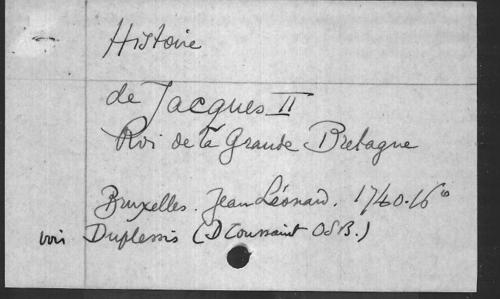 Histoire
de Jacques II
Roi de la Grande Bretagne
Bruxelles. Jean Léonard. 1740. 16°
voir Duplessis (D Toussaint OSB.)